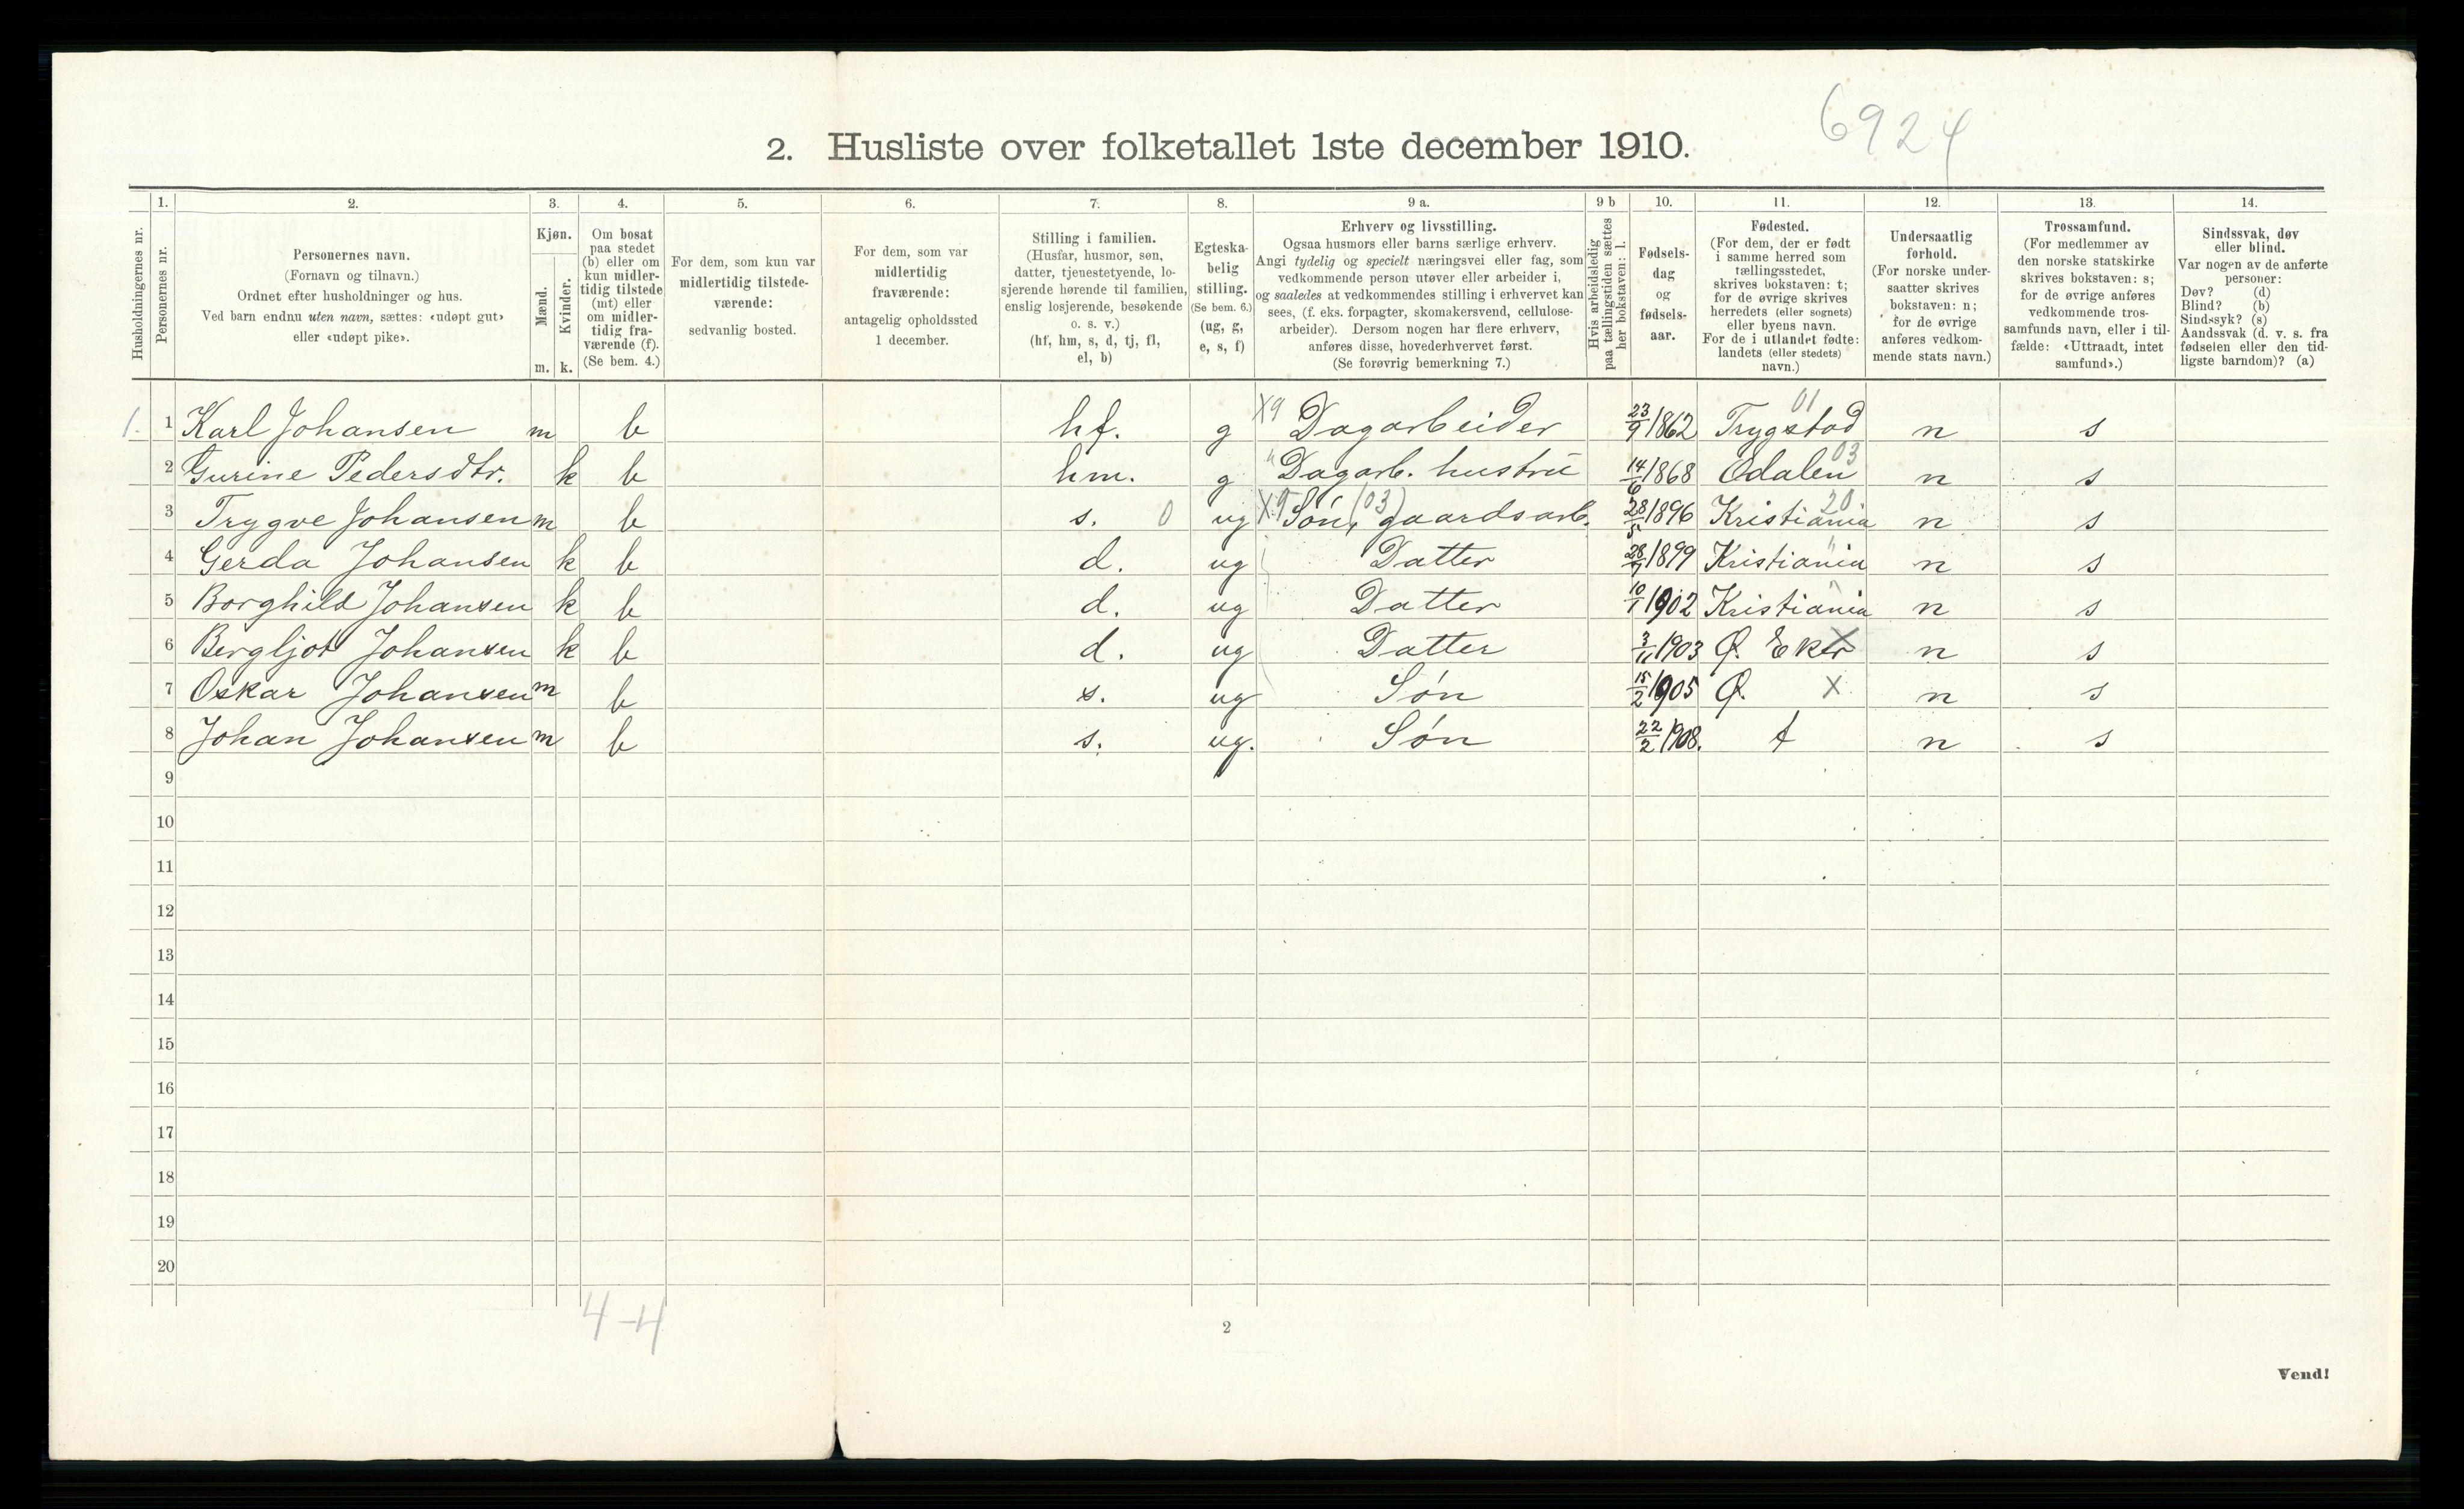 6924
2. Husliste over folketallet 1ste december 1910.
Husholdningernes nr.
1. Personernes nr.
2. Personernes navn.
(Fornavn og tilnavn.)
Ordnet efter husholdninger og hus.
Ved barn endnu uten navn, sættes: «udøpt gut»
eller «udøpt pike».
3. Kjøn.
Mænd. Kvinder.
m. k.
4. Om bosat
paa stedet
(b) eller om
kun midler-
tidig tilstede
(mt) eller
om midler-
tidig fra-
værende (f).
(Se bem. 4.)
5. For dem, som kun var
midlertidig tilstede-
værende:
sedvanlig bosted.
6. For dem, som var
midlertidig
fraværende:
antagelig opholdssted
1 december.
7. Stilling i familien.
(Husfar, husmor, søn,
datter, tjenestetyende, lo-
sjerende hørende til familien,
enslig losjerende, besøkende
o. s. v.)
(hf, hm, s, d, tj, fl,
el, b)
8. Egteska-
belig
stilling.
(Se bem. 6.)
(ug, g,
e, s, f)
9 a. Erhverv og livsstilling.
Ogsaa husmors eller barns særlige erhverv.
Angi tydelig og specielt næringsvei eller fag, som
vedkommende person utøver eller arbeider i,
og saaledes at vedkommendes stilling i erhvervet kan
sees, (f. eks. forpagter, skomakersvend, cellulose-
arbeider). Dersom nogen har flere erhverv,
anføres disse, hovederhvervet først.
(Se forøvrig bemerkning 7.)
9 b Hvis arbeidsledig
paa tællingstiden sættes
her bokstaven: l.
10. Fødsels-
dag
og
fødsels-
aar.
11. Fødested.
(For dem, der er født
i samme herred som
tællingsstedet,
skrives bokstaven: t;
for de øvrige skrives
herredets (eller sognets)
eller byens navn.
For de i utlandet fødte:
landets (eller stedets)
navn.)
12. Undersaatlig
forhold.
(For norske under-
saatter skrives
bokstaven: n;
for de øvrige
anføres vedkom-
mende stats navn.)
13. Trossamfund.
(For medlemmer av
den norske statskirke
skrives bokstaven: s;
for de øvrige anføres
vedkommende tros-
samfunds navn, eller i til-
fælde: «Uttraadt, intet
samfund».)
14. Sindssvak, døv
eller blind.
Var nogen av de anførte
personer:
Døv? (d)
Blind? (b)
Sindssyk? (s)
Aandssvak (d. v. s. fra
fødselen eller den tid-
ligste barndom)? (a)
1. 1 Karl Johansen m b hf. g X9 Dagarbeider 23/9 1862 Trygstad 01 n s
2 Gurine Pedersdtr. k b hm. g " Dagarb. hustru 14/6 1868 Odalen 03 n s
3 Trygve Johansen m b s. 0 ug X9 Søn, (03) gaardsarb. 28/5 1896 Kristiania 20 n s
4 Gerda Johansen k b d. ug Datter 28/7 1899 Kristiania " n s
5 Borghild Johansen k b d. ug Datter 10/1 1902 Kristiania " n s
6 Bergljot Johansen k b d. ug Datter 3/11 1903 Ø. Eker X n s
7 Oskar Johansen m b s. ug Søn 15/2 1905 Ø. X n s
8 Johan Johansen m b s. ug. Søn 22/2 1908. t n s
9
10
11
12
13
14
15
16
17
18
19
20
4-4
2
Vend!